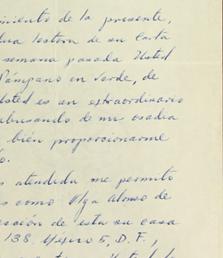 imiento de la presente,
tora de su Carta
semana pasada Usted
Pámpano en Verde, de
Usted es un extraordinario
abusando de mi osadía
bien proporcionarme
o.
atendida me permito
como Olga Alonso de
esta su casa
138. México 5, D. F.,